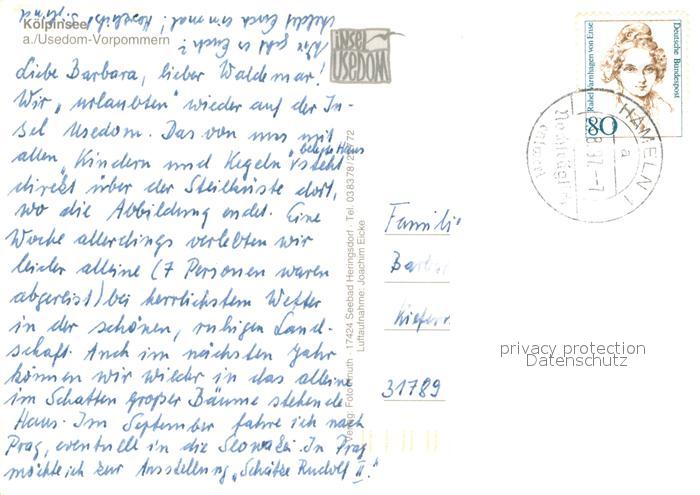 Kölpinsee
a./Usedom-Vorpommern
Meldet Euch einmal! Herzlichst
Wie geht es Euch?
Liebe Barbara, lieber Waldemar!
Wir „urlaubten" wieder auf der In-
sel Usedom. Das von uns mit
allen „Kindern und Kegeln" belegte Haus steht
direkt über der Steilküste dort,
wo die Abbildung endet. Eine
Woche allerdings verlebten wir
leider alleine (7 Personen waren
abgereist) bei herrlichstem Wetter
in der schönen, ruhigen Land-
schaft. Auch im nächsten Jahr
können wir wieder in das alleine
im Schatten großer Bäume stehende
Haus. Im September fahre ich nach
Prag, eventuelle in die Slowakei. In Prag
möchte ich zur Ausstellung „Schätze Rudolf II."
INSEL
USEDOM
Verlag: Foto 17424 Seebad Heringsdorf · Tel. 038378/22
Luftaufnahme: Joachim Eicke
Deutsche Bundespost
Rahel Varnhagen von Ense
80
HAMELN 1
a
Famili
Bar
Kiefer
31789
privacy protection
Datenschutz